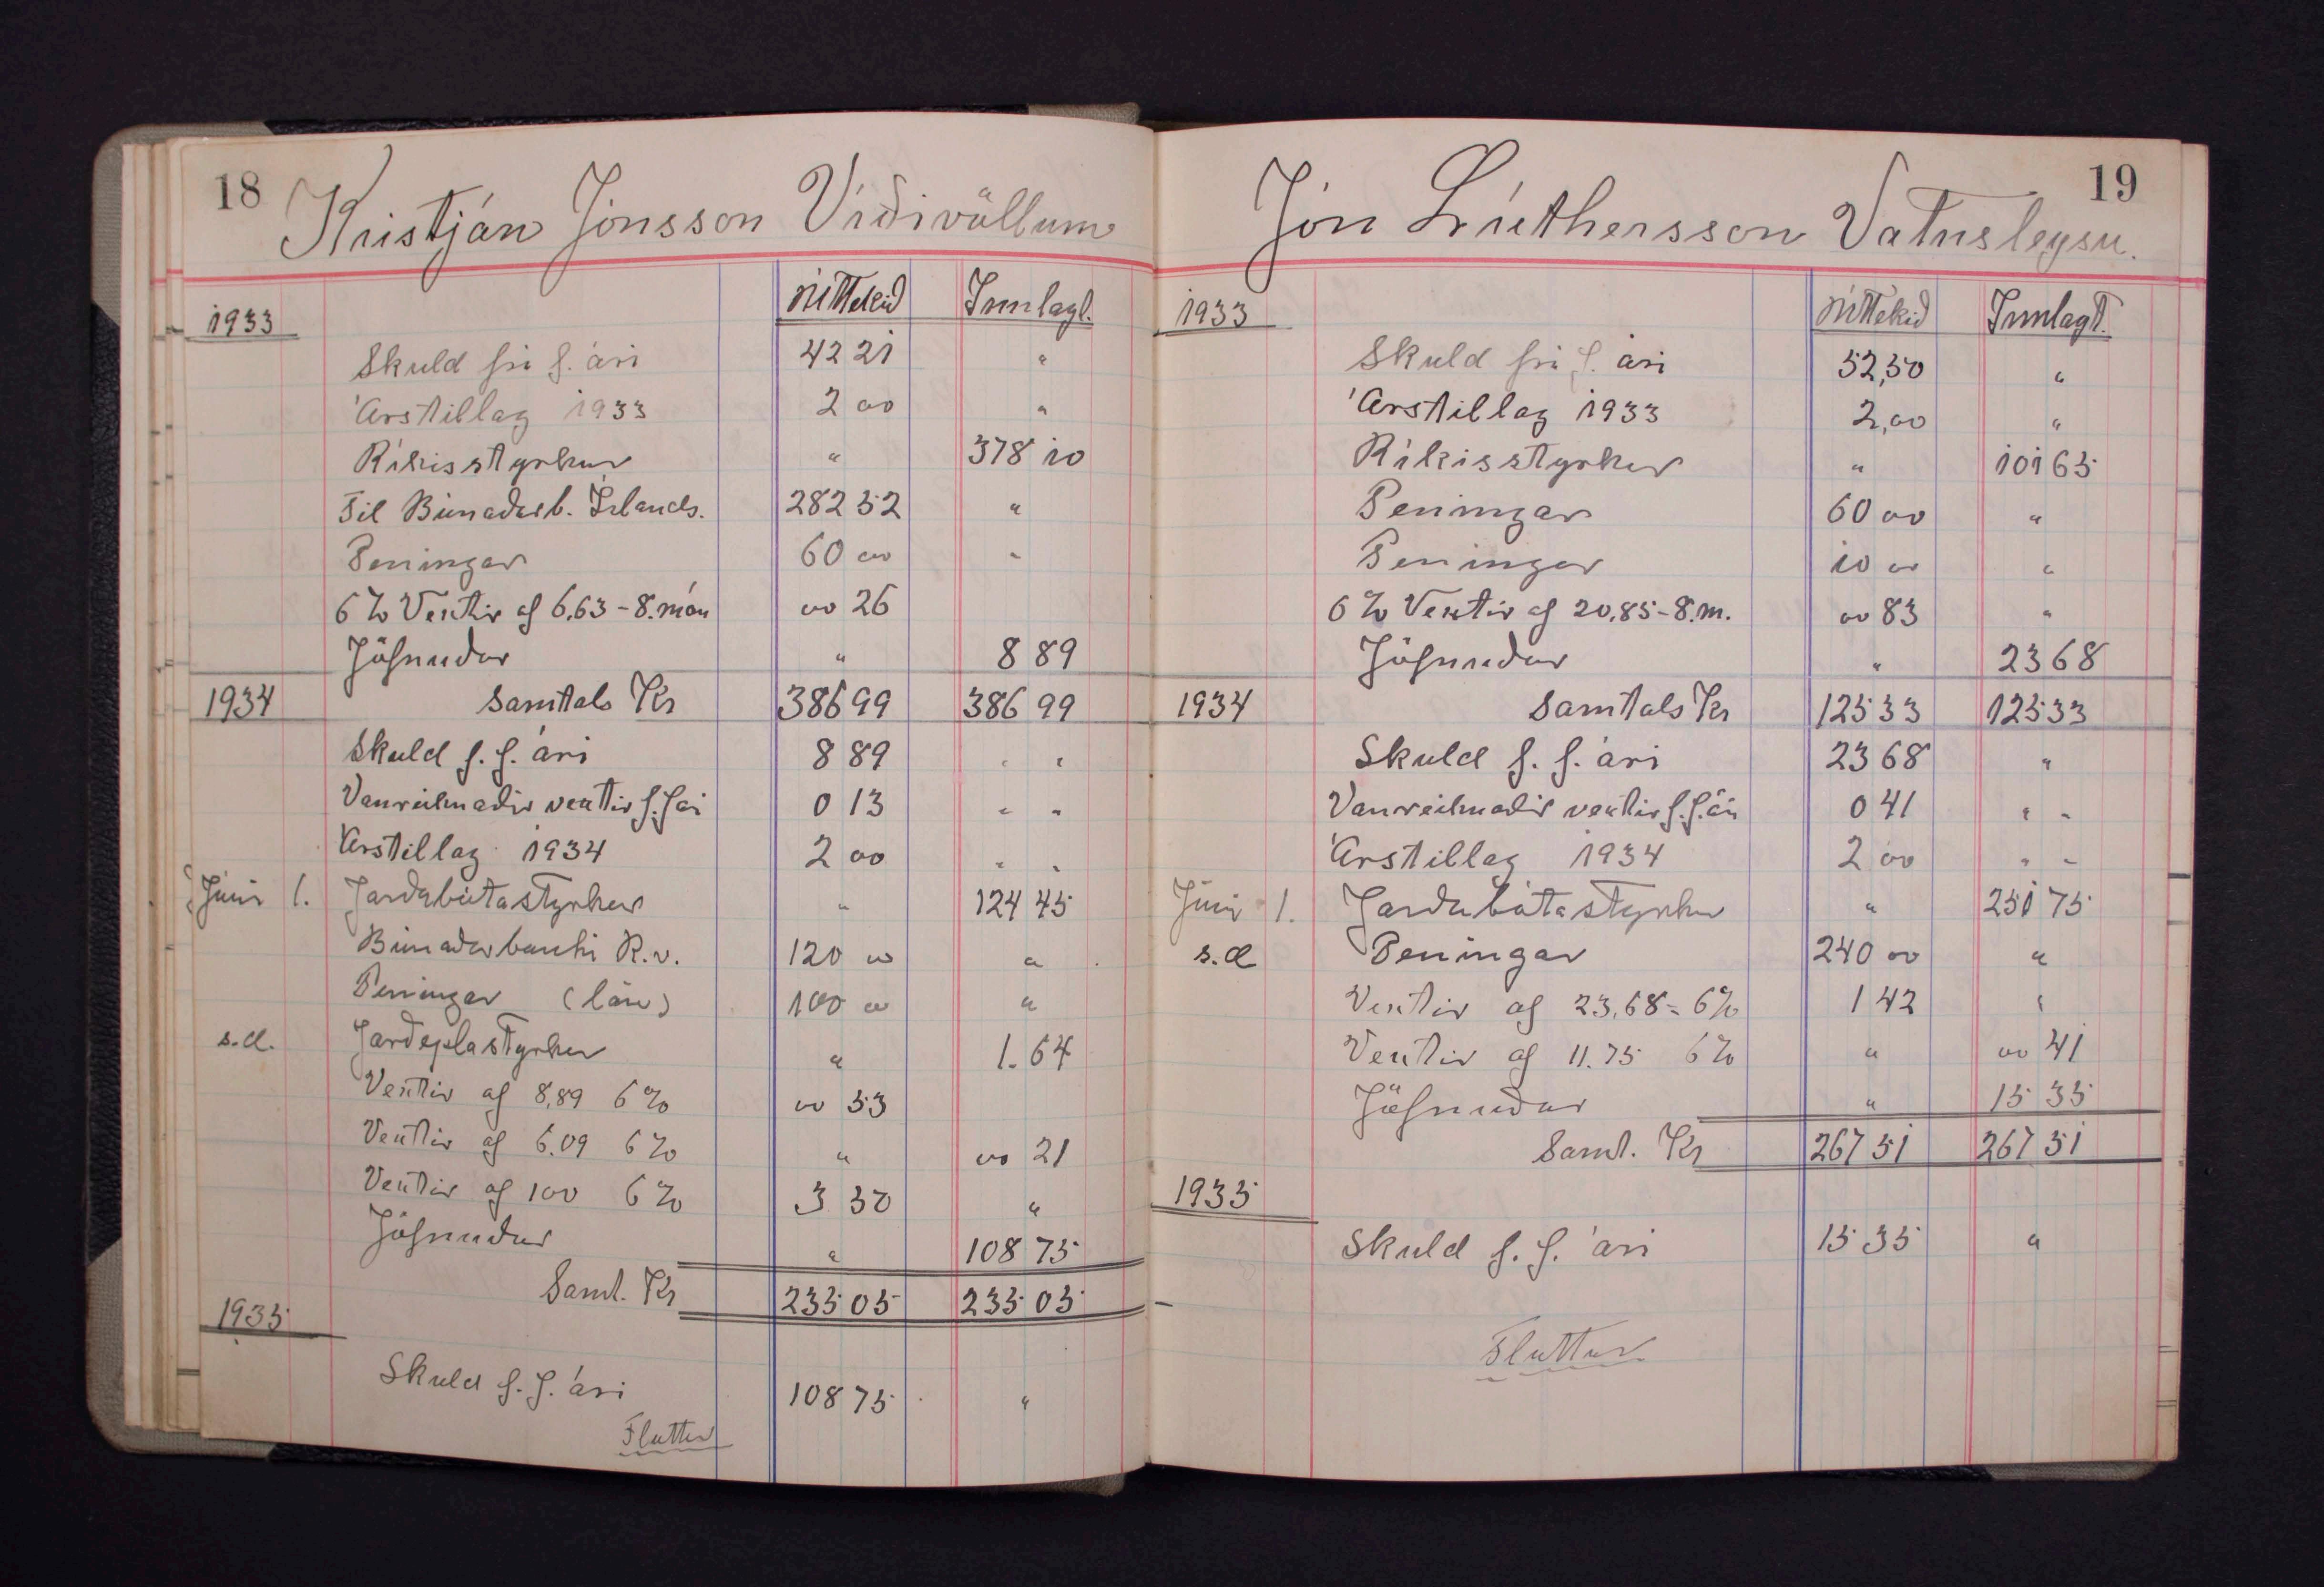 18
Kristján Jónsson Víðivöllum
úttekið Innlagt.
1933
Skuld frá f. ári 42 21 "
Árstillag 1933 2 00 "
Ríkisstyrkur " 378 10
Til Búnaðarb. Íslands. 282 52 "
Peningar 60 00 "
6% Vextir af 6,63 - 8. mán 00 26
Jöfnuður " 8 89
1934 Samtals Kr 386 99 386 99
Skuld f. f. ári 8 89 " "
Vanreiknaðir vextir f. f. ári 0 13 " "
Árstillag 1934 2 00 " "
Júní 1. Jarðabótastyrkur " 124 45
Búnaðarbanki R.v. 120 00 "
Peningar (lán) 100 00 "
s.d. Jarðeplastyrkur " 1.64
Vextir af 8,89 6% 00 53
Vextir af 6.09 6% " 00 21
Vextir af 100 6% 3 50 "
Jöfnuður " 108 75
Samt. Kr 235 05 235 05
1935
Skuld f. f. ári 108 75 "
Fluttur
19
Jón Lúthersson Vatnsleysu.
úttekið Innlagt.
1933
Skuld frá f. ári 52,50 "
Árstillag 1933 2,00 "
Ríkisstyrkur " 101 65
Peningar 60 00 "
Peningar 10 00 "
6% Vextir af 20,85 - 8. m. 00 83 "
Jöfnuður " 23 68
1934 Samtals Kr 125 33 125 33
Skuld f. f. ári 23 68 "
Vanreiknaðir vextir f. f. ári 0 41 " "
Árstillag 1934 2 00 " "
Júní 1. Jarðabótastyrkur " 251 75
s.d Peningar 240 00 "
Vextir af 23,68 = 6% 1 42 "
Vextir af 11.75 6% " 00 41
Jöfnuður " 15 35
Samt. Kr 267 51 267 51
1935
Skuld f. f. ári 15 35 "
Fluttur